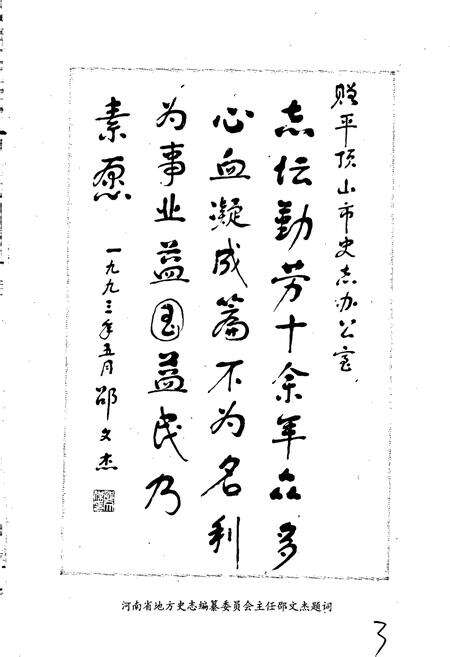 赠平顶山市史志办公室
志伝勤劳十余年众多
心血凝成篇不为名利
为事业益国益民乃
素愿
一九九三年五月 邵文杰
河南省地方史志编纂委员会主任邵文杰题词
3